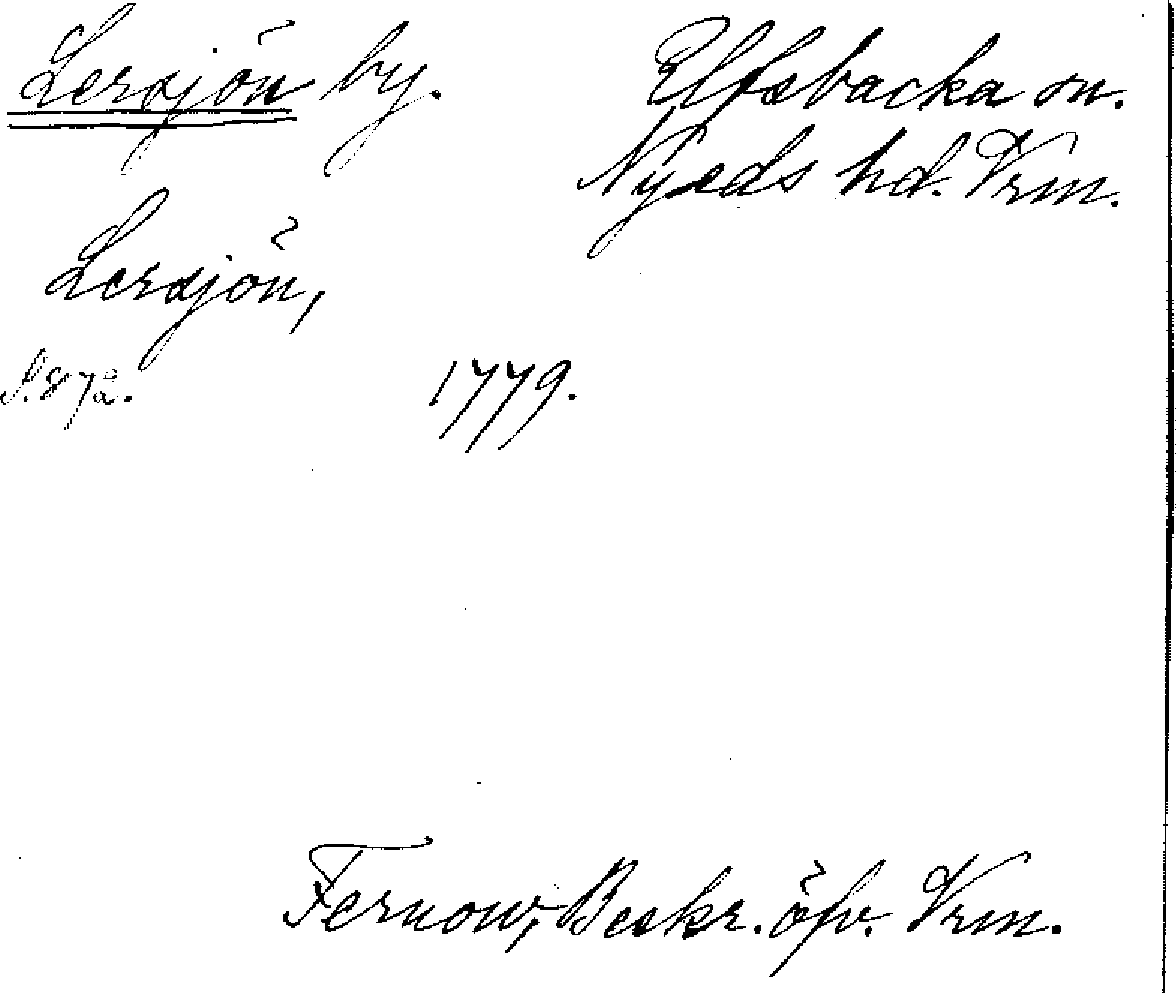 Lersjön by.
Elfsbacka sn.
Nyeds hd. Vrm.
Lersjön,
S. 872. 1779.
Fernow, Beskr. öfv. Vrm.